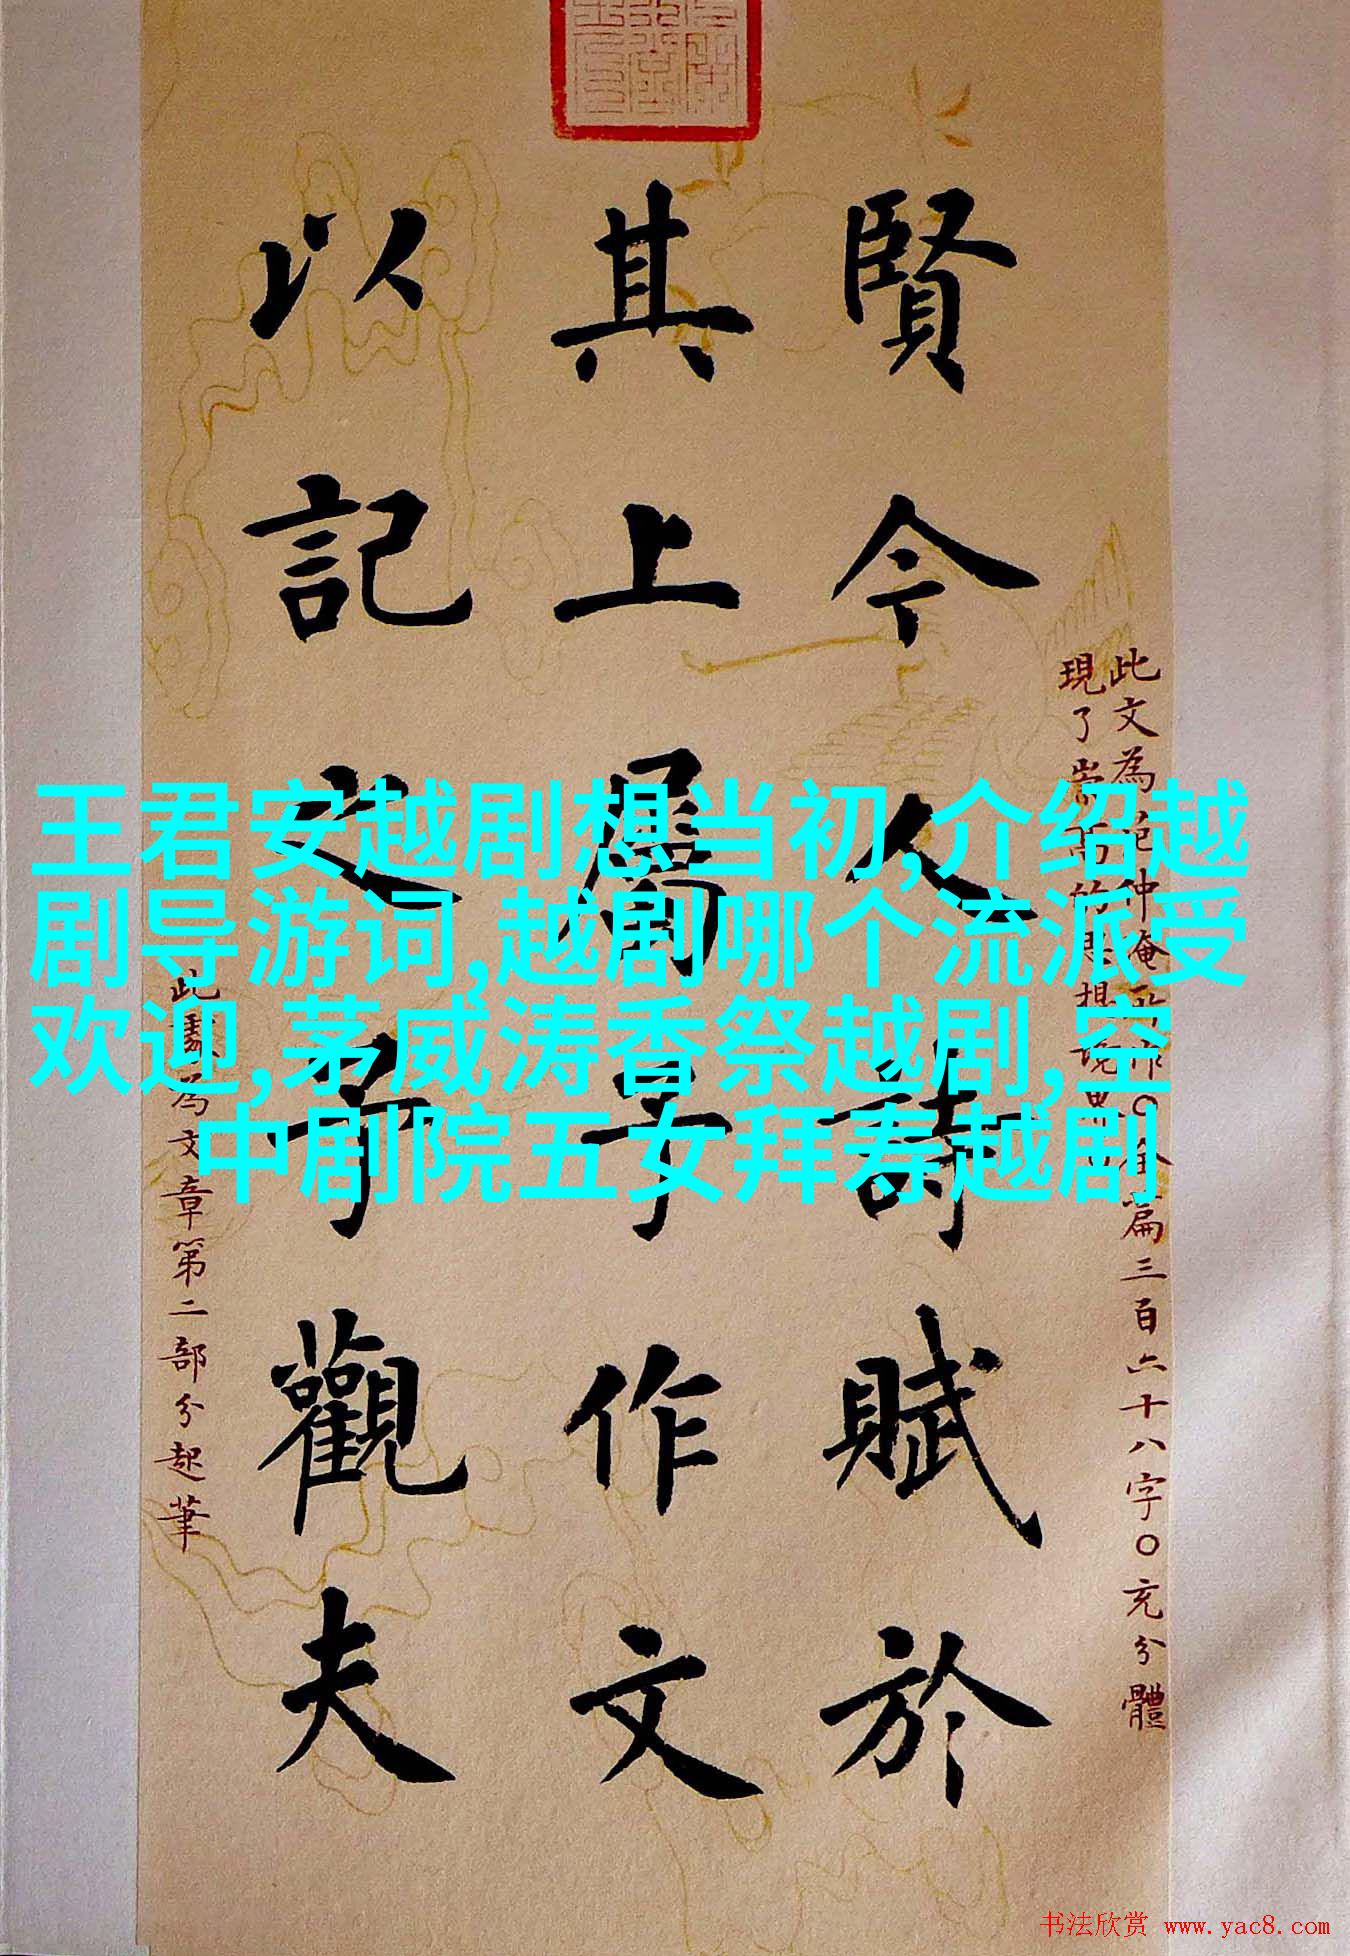 王君安越剧想当初,介绍越
剧导游词,越剧哪个流派受
欢迎,茅威涛香祭越剧,空
中剧院五女拜寿越剧
此文為范仲淹所作〇全篇三百六十八字〇充分體
現了崇高的思想境界
賢今人詩賦於
其上屬予作文
以記之予觀夫
此為文章第二部分起筆
书法欣赏 www.yac8.com